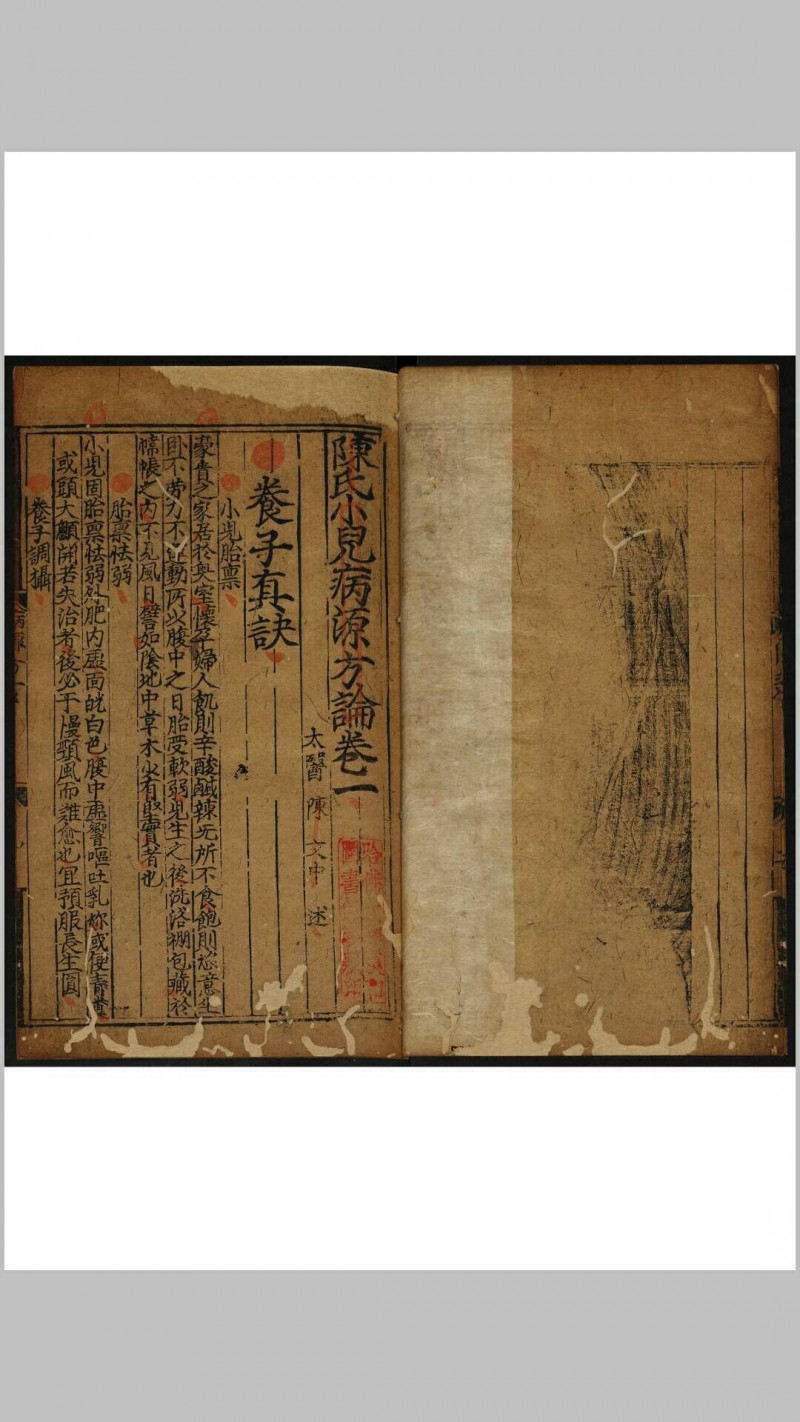 陳氏小兒病源方論卷一
太醫 陳 文中 述
養子真訣
小児胎禀
豪貴之家居於奥室懷孕婦人飢則辛酸鹹辣无所不食飽則恣意坐
卧不勞力不運動所以腹中之日胎受軟弱児生之後洗浴棚包藏於
幃帳之内不見風日譬如陰地中草木少有堅實者也
胎禀怯弱
小児固胎禀怯弱外肥内虚面㿠白色腹中虚響嘔吐乳妳或便青糞
或頭大顱開若失治者後必于慢驚風而難愈也宜預服長生圓
養子調攝
圖書